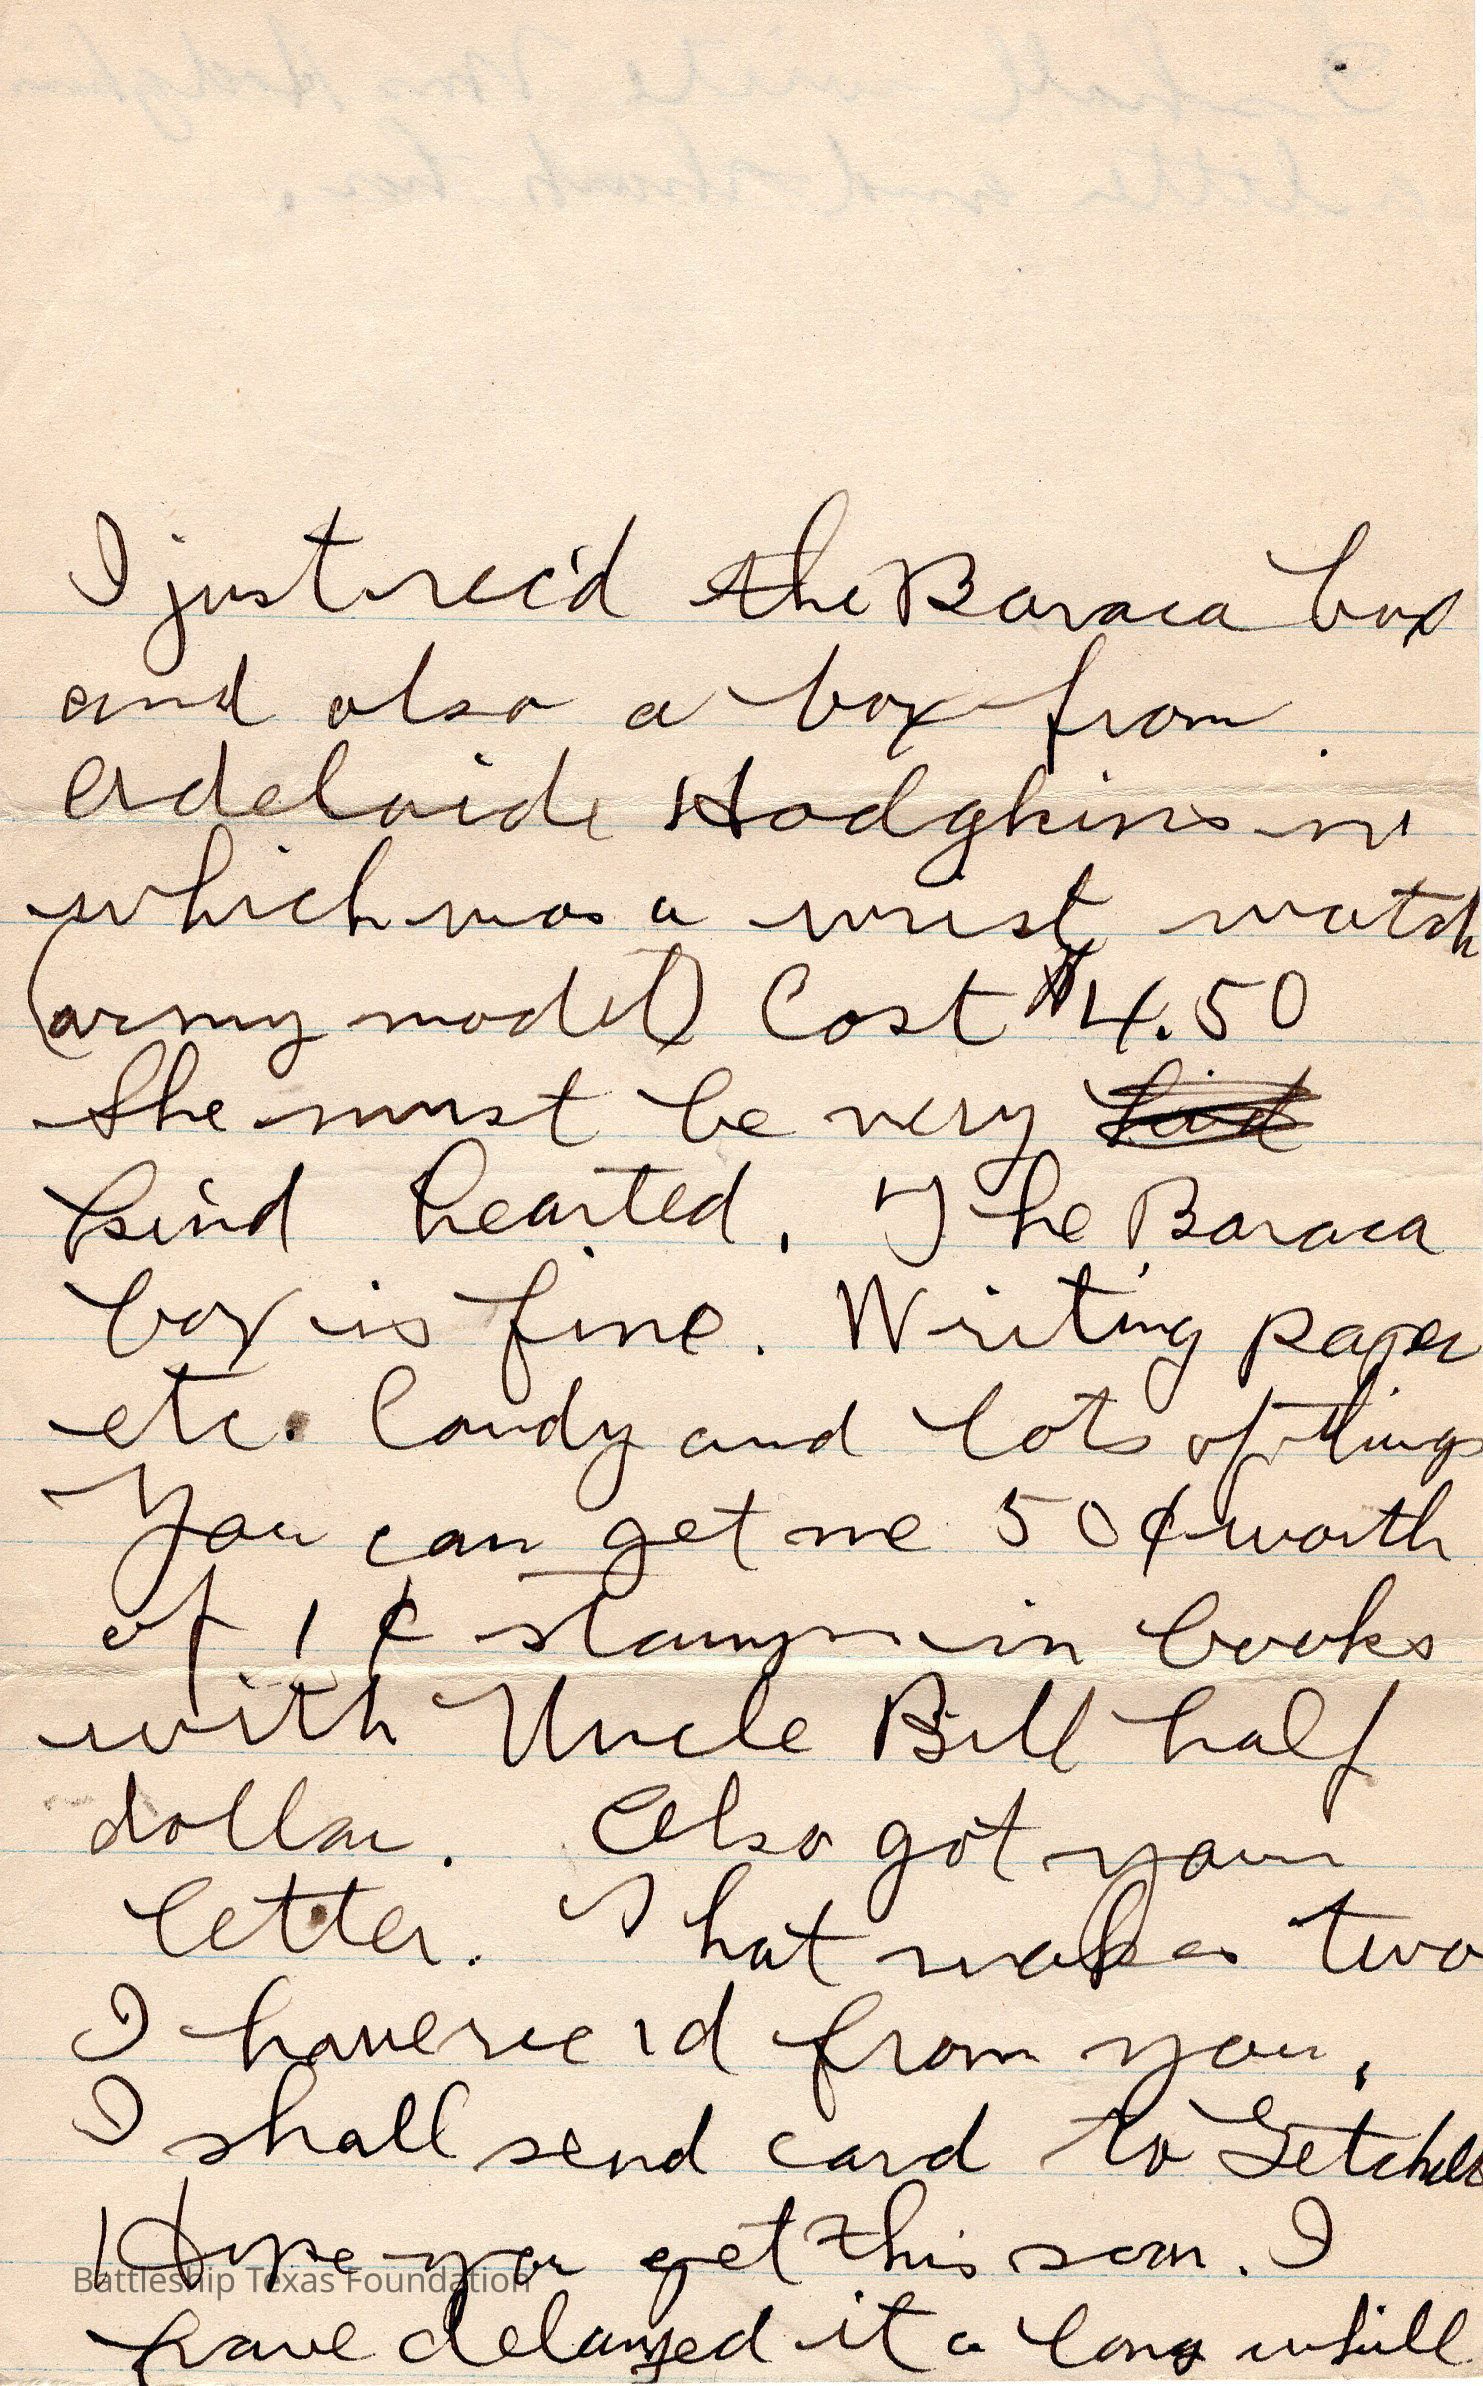 I just rec'd the Baraca box
and also a box from
Adelaide Hodgkins in
which was a wrist watch
(army model) Cost $4.50
She must be very kind
kind hearted. The Baraca
box is fine. Writing paper
etc. Candy and lots of things
You can get me 50¢ worth
of 1¢ stamps in books
with Uncle Bill half
dollar. Also got your
letter. That makes two
I have rec'd from you.
I shall send card to Getchells
Hope you get this soon. I
Battleship Texas Foundation
have delayed it a long whill